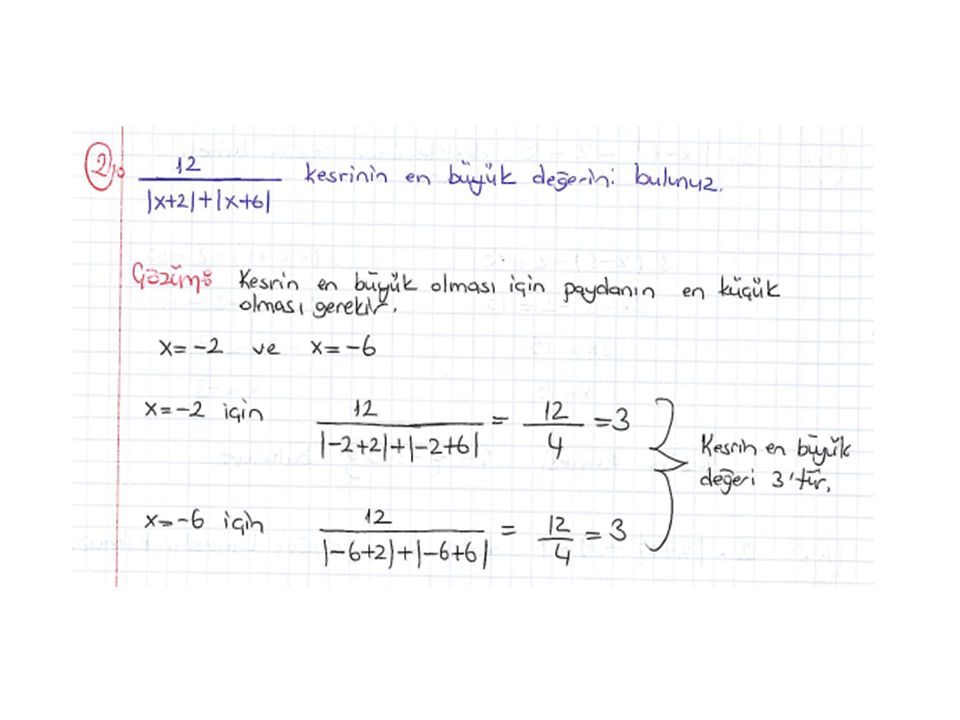 2) 12 / |x+2|+|x+6| kesrinin en büyük değerini bulunuz.
Çözüm: Kesrin en büyük olması için paydanın en küçük
olması gerekir.
x=-2 ve x=-6
x=-2 için 12 / |-2+2|+|-2+6| = 12/4 =3
Kesrin en büyük
değeri 3'tür.
x=-6 için 12 / |-6+2|+|-6+6| = 12/4 = 3